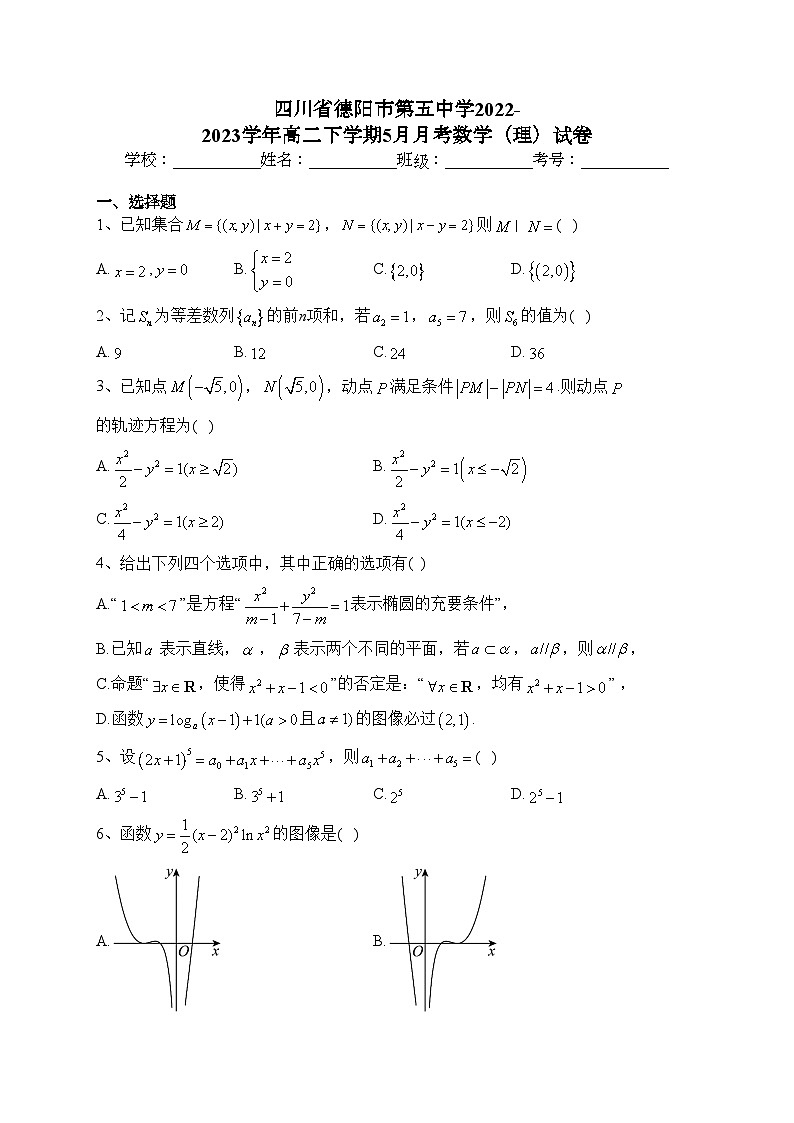 四川省德阳市第五中学2022-
2023学年高二下学期5月月考数学（理）试卷
学校：___________姓名：___________班级：___________考号：___________
一、选择题
1、已知集合 M = {(x, y) | x + y = 2}，N = {(x, y) | x − y = 2}则 M | N = ( )
A. x = 2，y = 0 B. { x = 2 y = 0 C. {2,0} D. {(2,0)}
2、记 Sₙ 为等差数列 {aₙ} 的前n项和，若 a₂ = 1，a₅ = 7，则 S₆ 的值为( )
A. 9 B. 12 C. 24 D. 36
3、已知点 M(−√5,0)，N(√5,0)，动点 P 满足条件 |PM| − |PN| = 4 .则动点 P
的轨迹方程为( )
A. x²/2 − y² = 1(x ≥ √2) B. x²/2 − y² = 1(x ≤ −√2)
C. x²/4 − y² = 1(x ≥ 2) D. x²/4 − y² = 1(x ≤ −2)
4、给出下列四个选项中，其中正确的选项有( )
A.“ 1 < m < 7 ”是方程“ x²/(m−1) + y²/(7−m) = 1表示椭圆的充要条件”，
B.已知 a 表示直线，α，β 表示两个不同的平面，若 a ⊂ α，a//β，则 α//β，
C.命题“ ∃x ∈ R，使得 x² + x − 1 < 0 ”的否定是：“ ∀x ∈ R，均有 x² + x − 1 > 0 ”，
D.函数 y = logₐ(x − 1) + 1(a > 0且 a ≠ 1) 的图像必过 (2,1) .
5、设 (2x + 1)⁵ = a₀ + a₁x + ⋯ + a₅x⁵，则 a₁ + a₂ + ⋯ + a₅ = ( )
A. 3⁵ − 1 B. 3⁵ + 1 C. 2⁵ D. 2⁵ − 1
6、函数 y = 1/2 (x − 2)² ln x² 的图像是( )
y y
A. O x B. O x